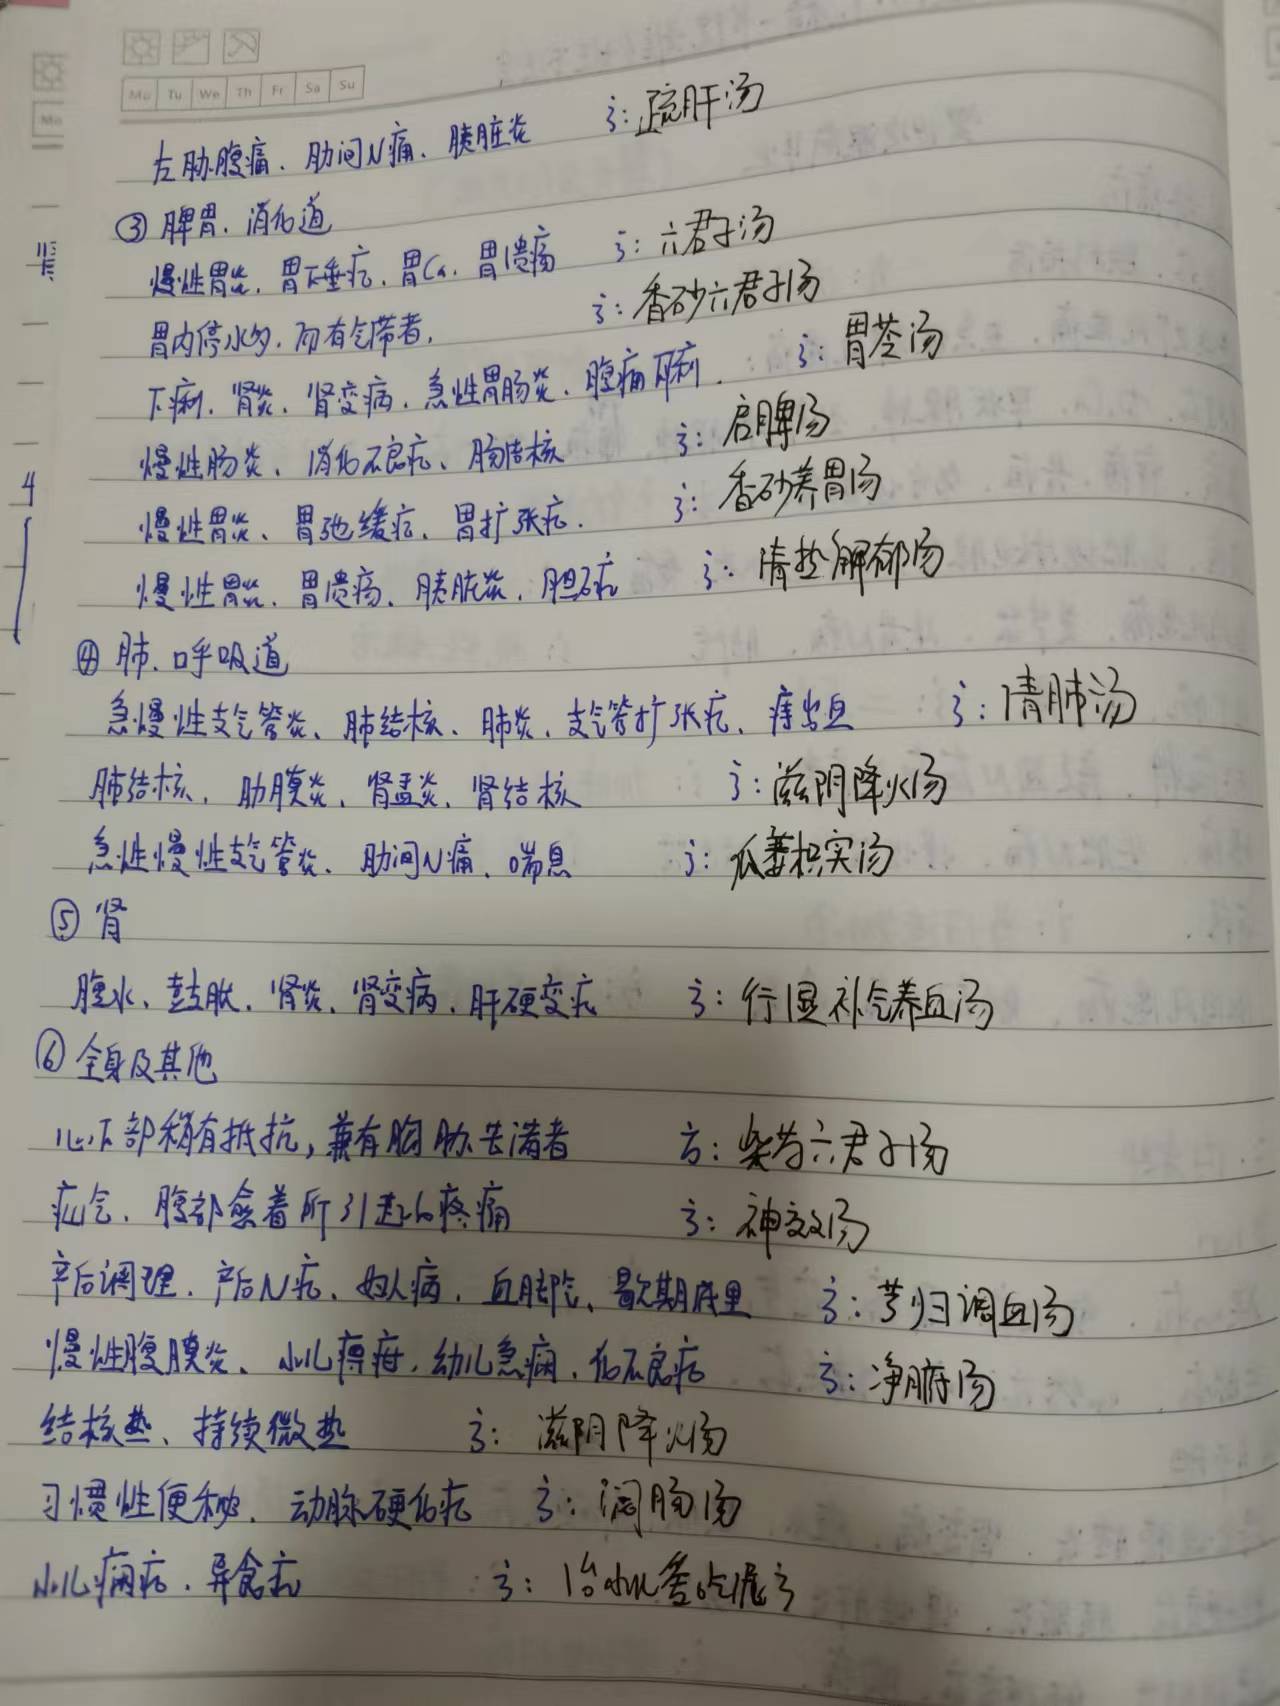 Mo Tu We Th Fr Sa Su
Mo
左胁腹痛、肋间N痛、胰脏炎 方:疏肝汤
③ 脾胃、消化道
慢性胃炎、胃下垂症、胃Ca、胃溃疡 方:六君子汤
胃内停水多,而有气滞者, 方:香砂六君子汤
下痢、肾炎、肾变病、急性胃肠炎、腹痛下利. 方:胃苓汤
慢性肠炎、消化不良症、肠结核 方:启脾汤
慢性胃炎、胃弛缓症、胃扩张症. 方:香砂养胃汤
慢性胃炎、胃溃疡、胰脏炎、胆石症 方:清热解郁汤
4
④ 肺、呼吸道
急慢性支气管炎、肺结核、肺炎、支气管扩张症、痔出血 方:清肺汤
肺结核、肋膜炎、肾盂炎、肾结核 方:滋阴降火汤
急性慢性支气管炎、肋间N痛、喘息 方:瓜蒌枳实汤
⑤ 肾
腹水、鼓胀、肾炎、肾变病、肝硬变症 方:行湿补气养血汤
⑥ 全身及其他
心下部稍有抵抗,兼有胸胁苦满者 方:柴芍六君子汤
疝气、腹部愈着所引起的疼痛 方:神效汤
产后调理、产后N症、妇人病、血脚气、 方:芎归调血汤
慢性腹膜炎、小儿 幼儿 化不良症 方:净腑汤
结核热、持续微热 方:滋阴降火汤
习惯性便秘、动脉硬化症 方:润肠汤
小儿 症、异食症 方:治小儿